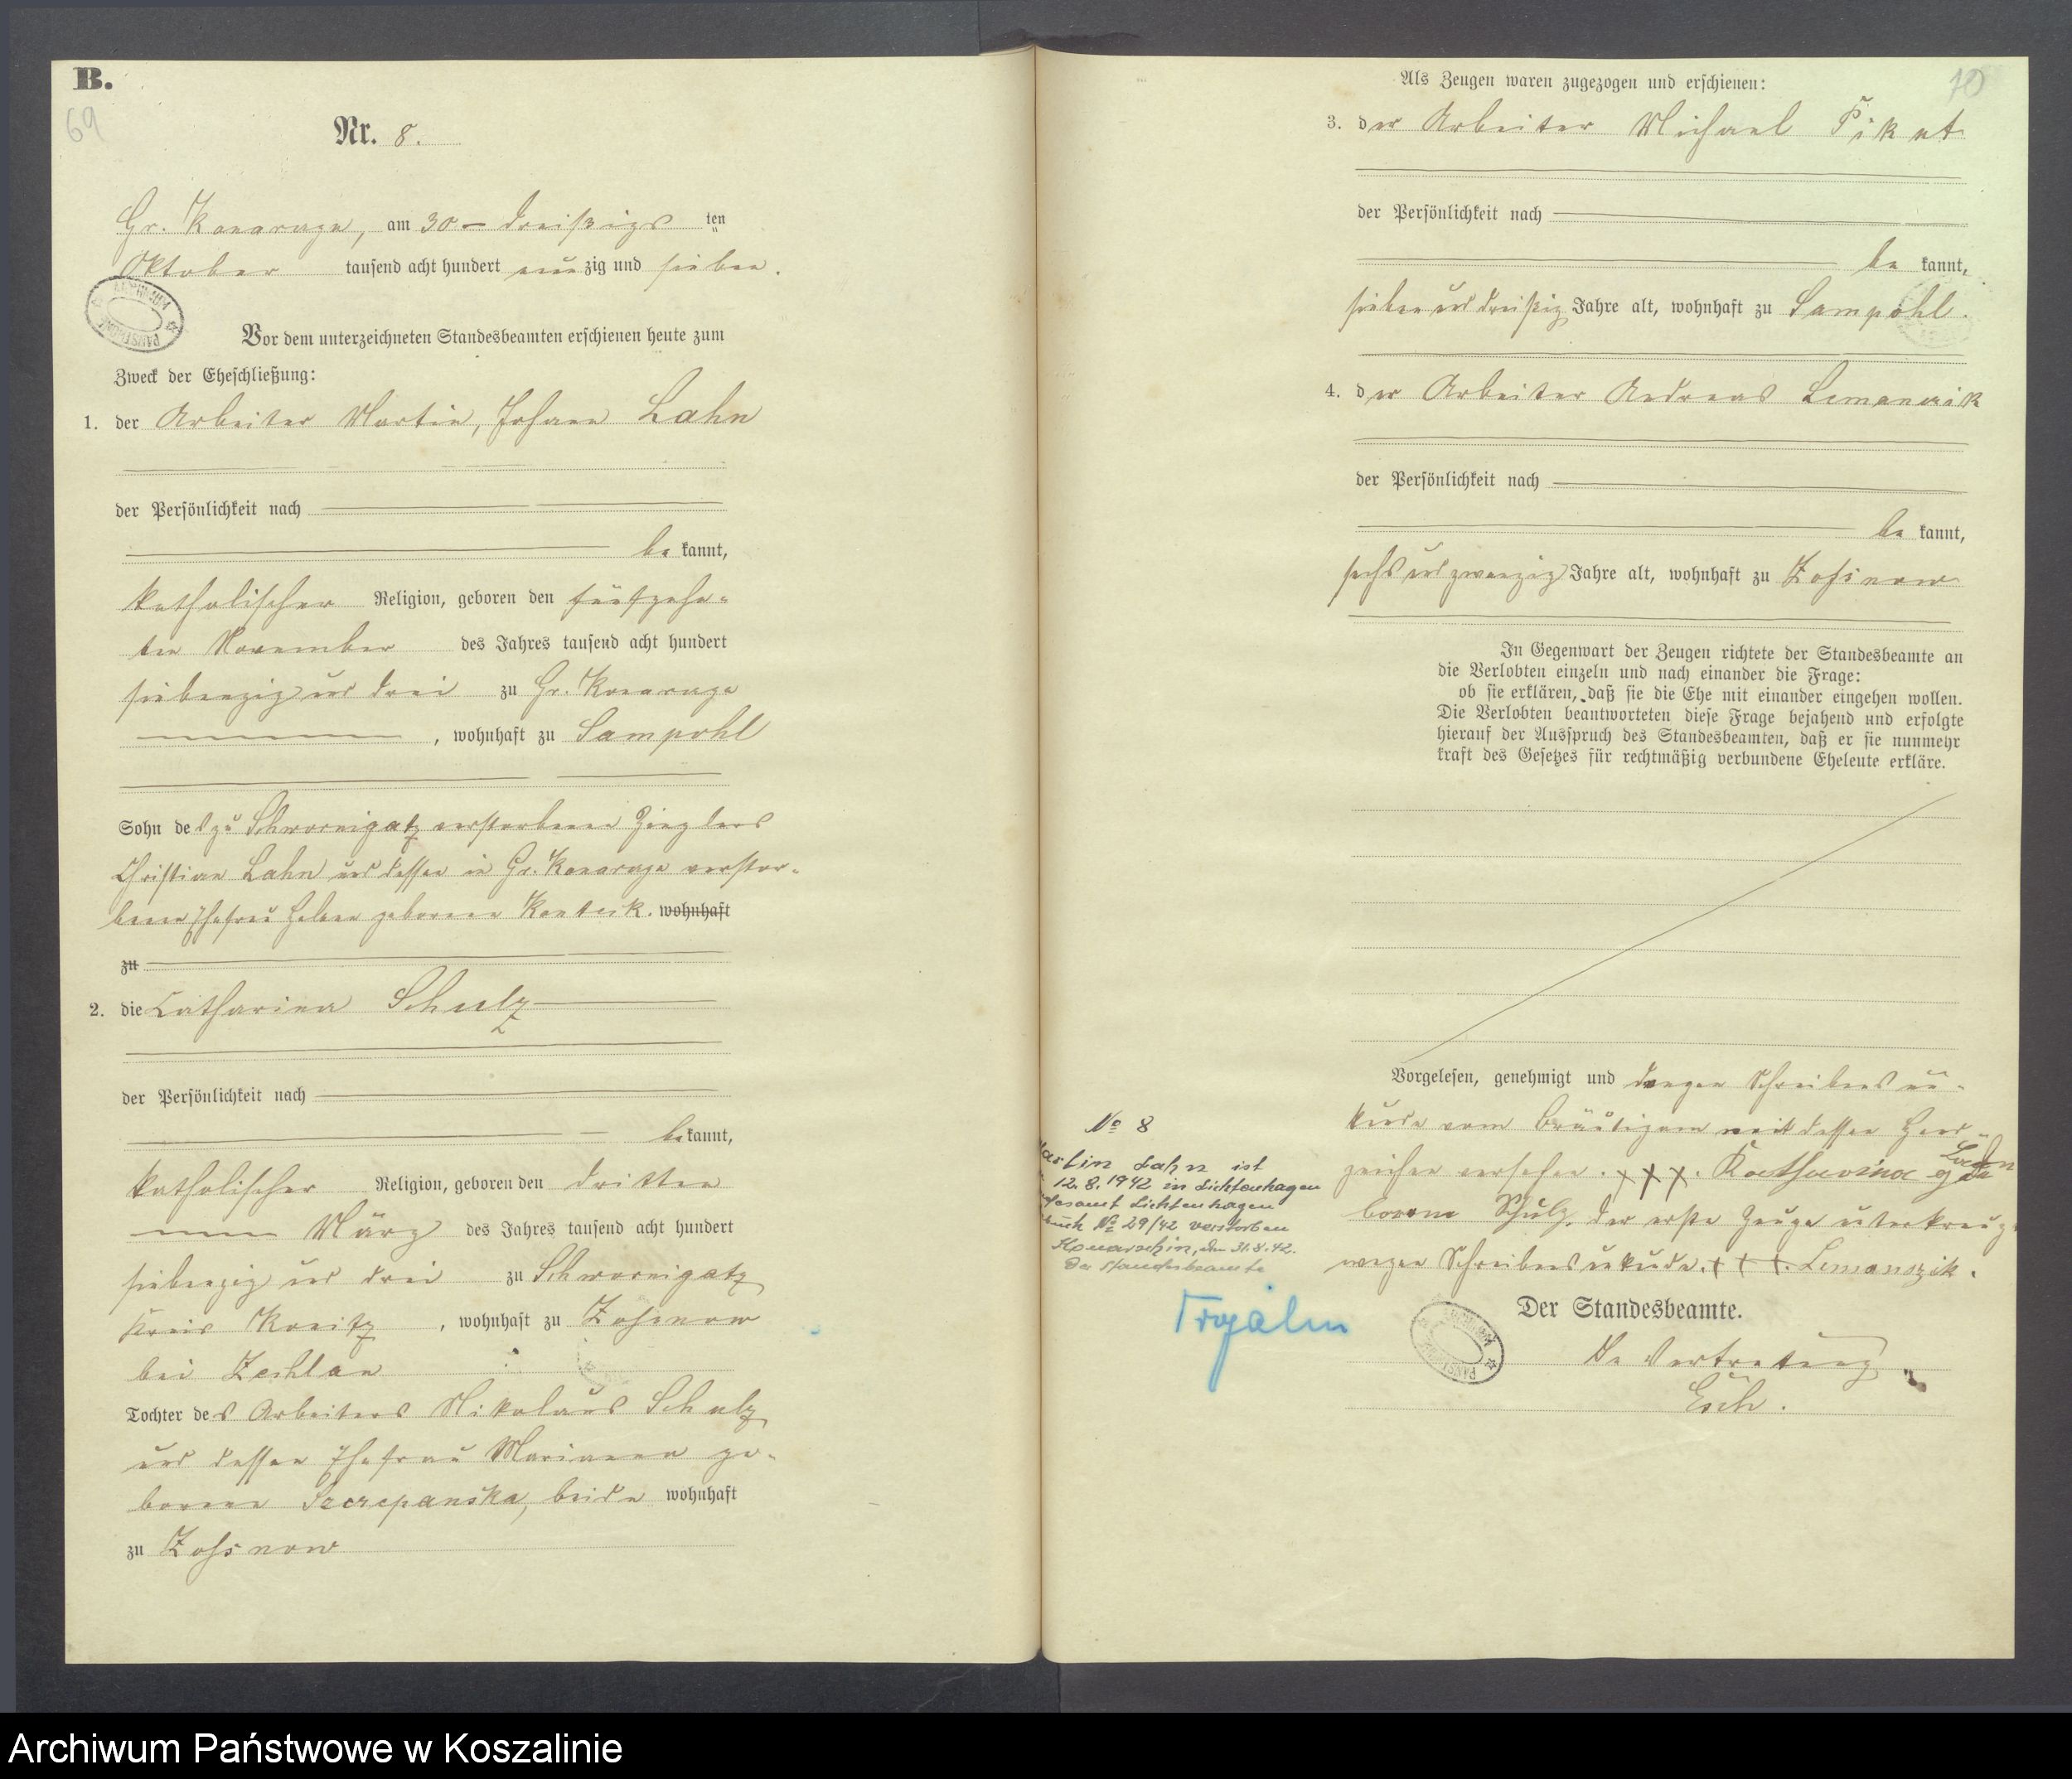 B.
69
Nr. 8.
Gr. Konarzyn, am 30 – dreißigs ten
Oktober tausend acht hundert neunzig und sieben.
Vor dem unterzeichneten Standesbeamten erschienen heute zum
Zweck der Eheschließung:
1. der Arbeiter Martin, Johann Lahn
der Persönlichkeit nach
be kannt,
katholischer Religion, geboren den fünfzehn-
ten November des Jahres tausend acht hundert
siebenzig und drei zu Gr. Konarzyn
, wohnhaft zu Sampohl
Sohn des zu Schwornigatz verstorbenen Zieglers
Christian Lahn und dessen in Gr. Konarzyn verstor-
benen Ehefrau Helene geborenen . wohnhaft
zu
2. die Catharina Schulz
der Persönlichkeit nach
bekannt,
katholischer Religion, geboren den dritten
März des Jahres tausend acht hundert
siebenzig und drei zu Schwornigatz
Kreis Konitz , wohnhaft zu Zossnow
bei Zechlau
Tochter des Arbeiters Nikolaus Schulz
und dessen Ehefrau Marianna ge-
borene Szczepanska, beide wohnhaft
zu Zossnow
70
Als Zeugen waren zugezogen und erschienen:
3. der Arbeiter Michael Pikut
der Persönlichkeit nach
be kannt,
sieben und dreißig Jahre alt, wohnhaft zu Sampohl.
4. der Arbeiter Andreas Lemanczik
der Persönlichkeit nach
be kannt,
sechs und zwanzig Jahre alt, wohnhaft zu Zossnow
In Gegenwart der Zeugen richtete der Standesbeamte an
die Verlobten einzeln und nach einander die Frage:
ob sie erklären, daß sie die Ehe mit einander eingehen wollen.
Die Verlobten beantworteten diese Frage bejahend und erfolgte
hierauf der Ausspruch des Standesbeamten, daß er sie nunmehr
kraft des Gesetzes für rechtmäßig verbundene Eheleute erkläre.
Vorgelesen, genehmigt und wegen Schreibens un-
kunde vom Bräutigam mit dessen Hand-
zeichen versehen. +++. Katharina Lahn ge
borene Schulz. Der erste Zeuge unterkreuzt
wegen Schreibensunkunde. + + +. Lemanszik.
Der Standesbeamte.
In Vertretung
Esch.
No 8
Martin Lahn ist
12.8.1942 in Lichtenhagen
Lichtenhagen
No 29/42 verstorben
Konarschin, den 31.8.42.
Der Standesbeamte
Archiwum Państwowe w Koszalinie